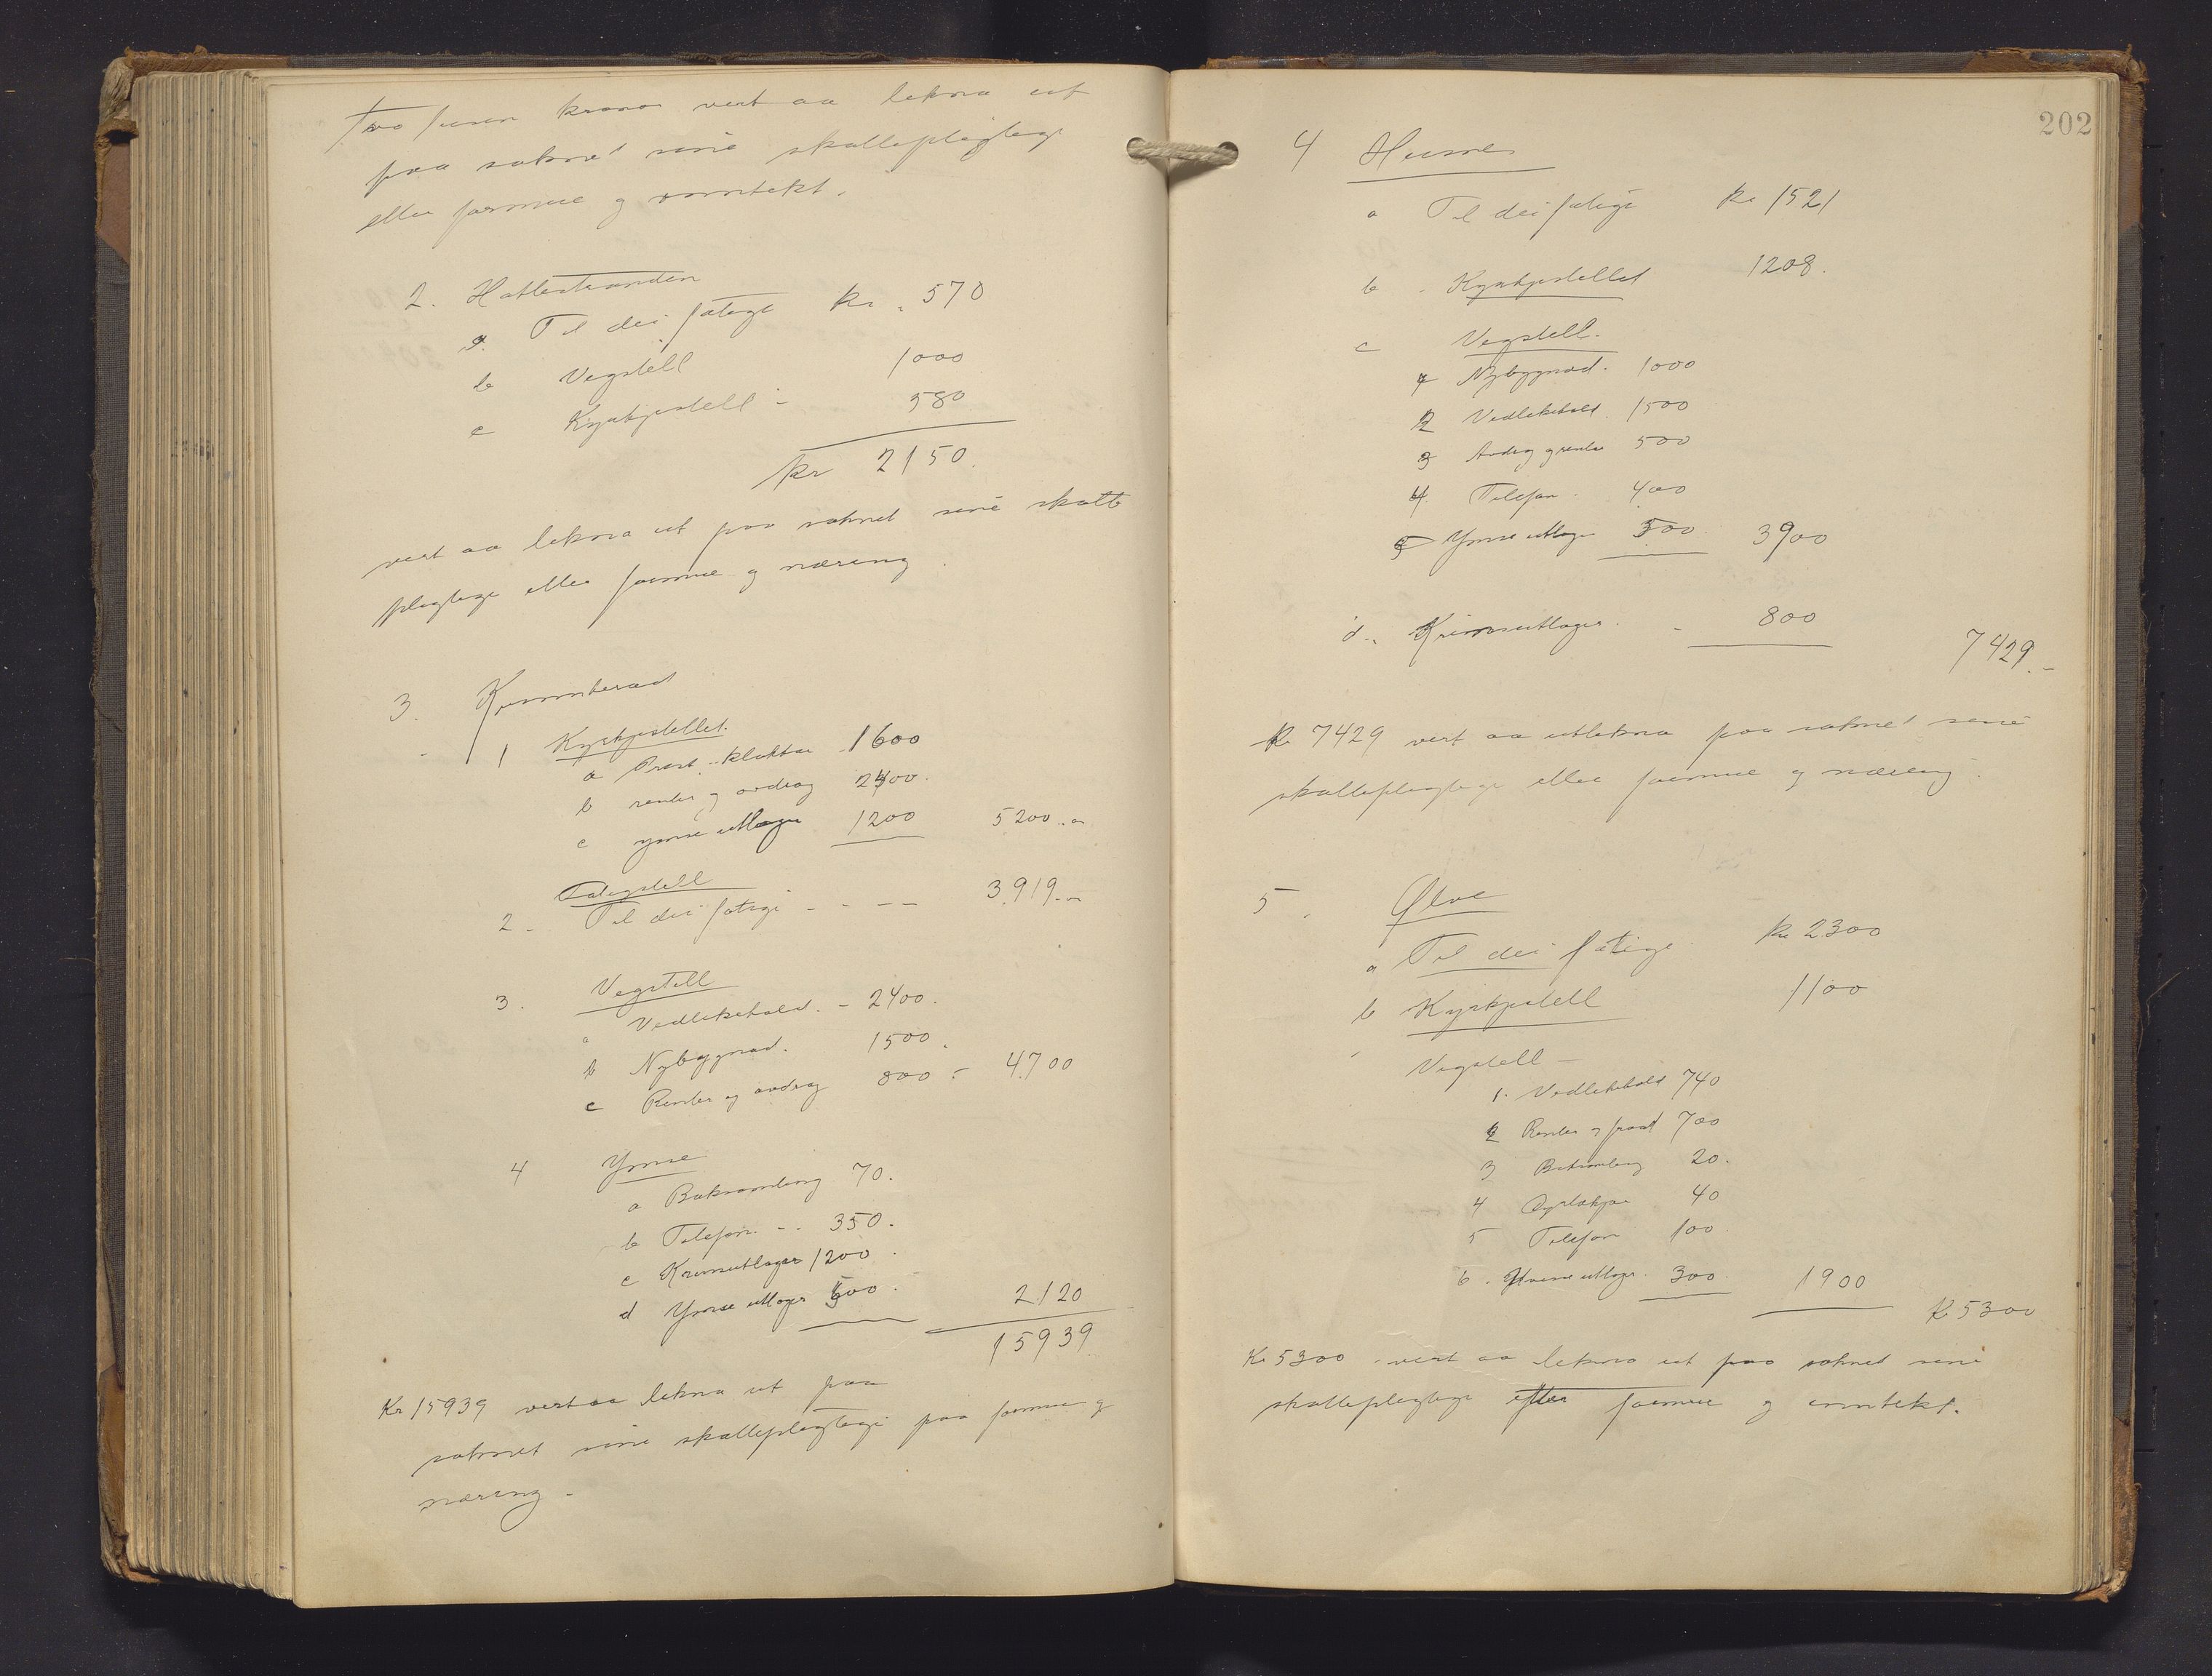 Two tusen kronor vert aa likna ut
paa soknet sine skatteplagtage
etter formue og inntekt.
2. Hatlestranden
a. Til dei fatige kr. 570
b Vegstell 1000
c Kyrkjestell - 580
kr 2150
vert aa likna ut paa soknet sine skatte
plagtage etter formue og næring.
3. Kvinnherad
1 Kyrkjestellet.
a Prest - klokkar 1600
b renter og avdrag 2400.
c ymse utlagor 1200 5200
Fatigstell
2 - Til dei fatige - - - - 3919.-
3. Vegstell
a Vedlikehald. - 2400.
b Nybyggnad. 1500.
c Renter og avdrag 800 - 4700
4 Ymse
a Boksamling 70.
b Telefon - - 350.
c Krinsutlagor 1200.
d Ymse utlagor 500. 2120
15939
Kr 15939 vert aa likna ut paa
soknet sine skatteplagtage paa formue og
næring -
202
4 Husnes
a Til dei fatige Kr 1521
b - Kyrkjestellet 1208.
c Vegstell.
1 Nybyggnad. 1000
2 Vedlikehald. 1500
3 Avdrag og renter 500
4 Telefon. 400
5 Ymse utlagor 500. 3900
d. Krinsutlagor. - 800
7429.-
Kr 7429 vert aa utlikna paa soknet sine
skatteplagtage etter formue og næring.
5. Ølve
a Til dei fatige kr 2300
b Kyrkjestell 1100
Vegstell -
1. Vedlikehald 740
2 Renter og 700
3 Boksamling 20.
4 Dyrlækjar 40
5 Telefon 100.
6. Ymse utlagor. 300. 1900
Kr 5300
Kr 5300 vert aa likna ut paa soknet sine
skatteplagtage etter formue og inntekt.